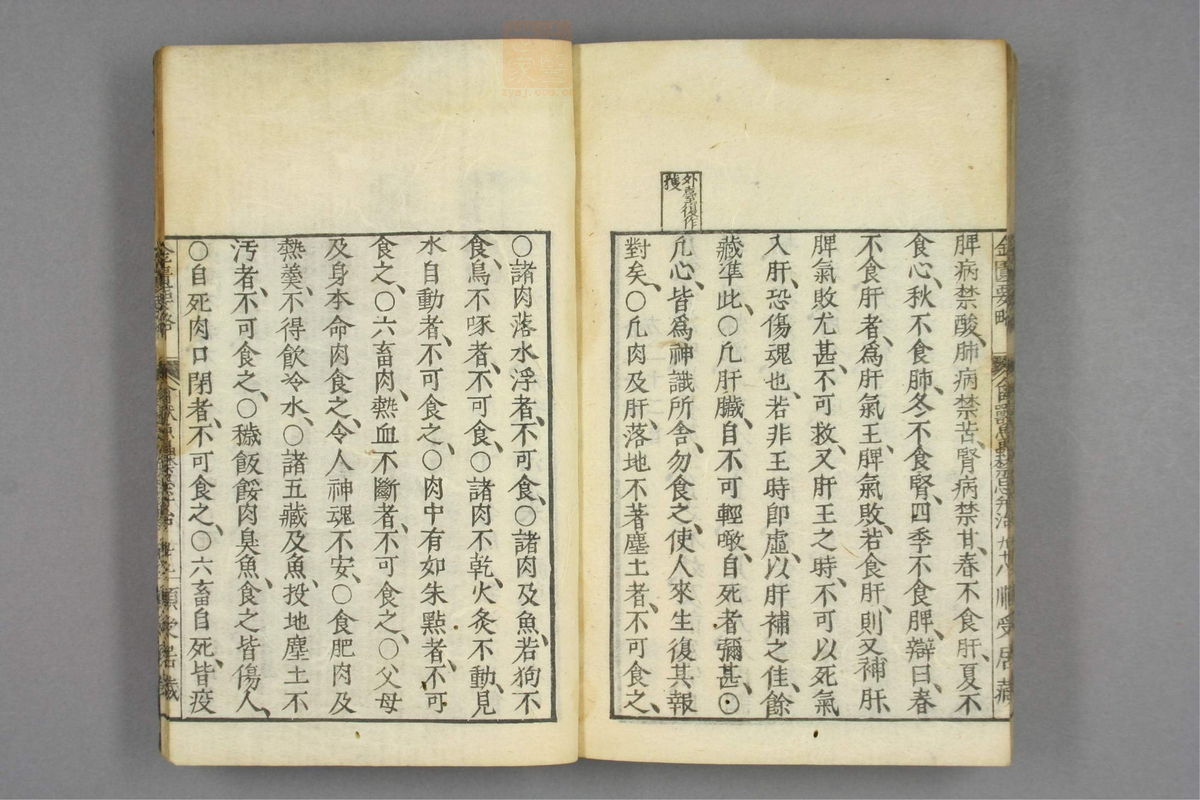 金匱要略
脾病禁酸、肺病禁苦、腎病禁甘、春不食肝、夏不
食心、秋不食肺、冬不食腎、四季不食脾、辯曰、春
不食肝者、爲肝氣王、脾氣敗、若食肝、則又補肝、
脾氣敗尤甚、不可救、又肝王之時、不可以死氣
入肝、恐傷魂也、若非王時卽虛、以肝補之佳、餘
藏準此、○凢肝臟、自不可輕噉、自死者彌甚、○
外臺復作
獲
凢心、皆爲神識所舍、勿食之、使人來生復其報
對矣、○凢肉及肝、落地不著塵土者、不可食之、
○諸肉落水浮者、不可食、○諸肉及魚、若狗不
食、鳥不啄者、不可食、○諸肉不乾、火灸不動、見
水自動者、不可食之、○肉中有如朱㸃者、不可
食之、○六畜肉、熱血不斷者、不可食之、○父母
及身本命肉食之、令人神魂不安、○食肥肉及
熱羮、不得飮冷水、○諸五藏及魚、投地塵土不
汚者、不可食之、○穢飯餒肉臭魚、食之皆傷人、
○自死肉口閉者、不可食之、○六畜自死、皆疫